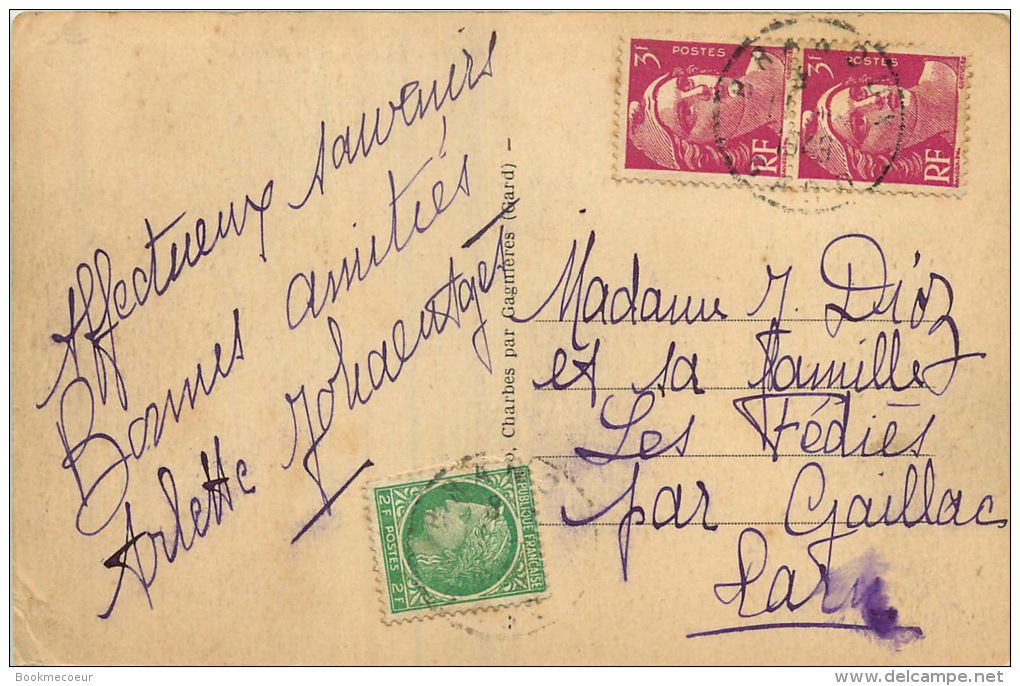 Affectueux souvenirs
Bonnes amitiés
Arlette
Charbes par Gagnières (Gard) -
3F POSTES RF
3F POSTES RF
Madame J. Dioz
et sa famille
Les Fédiès
par Gaillac
Tarn
RÉPUBLIQUE FRANÇAISE
2F POSTES 2F
Bookmecoeur
www.delcampe.net